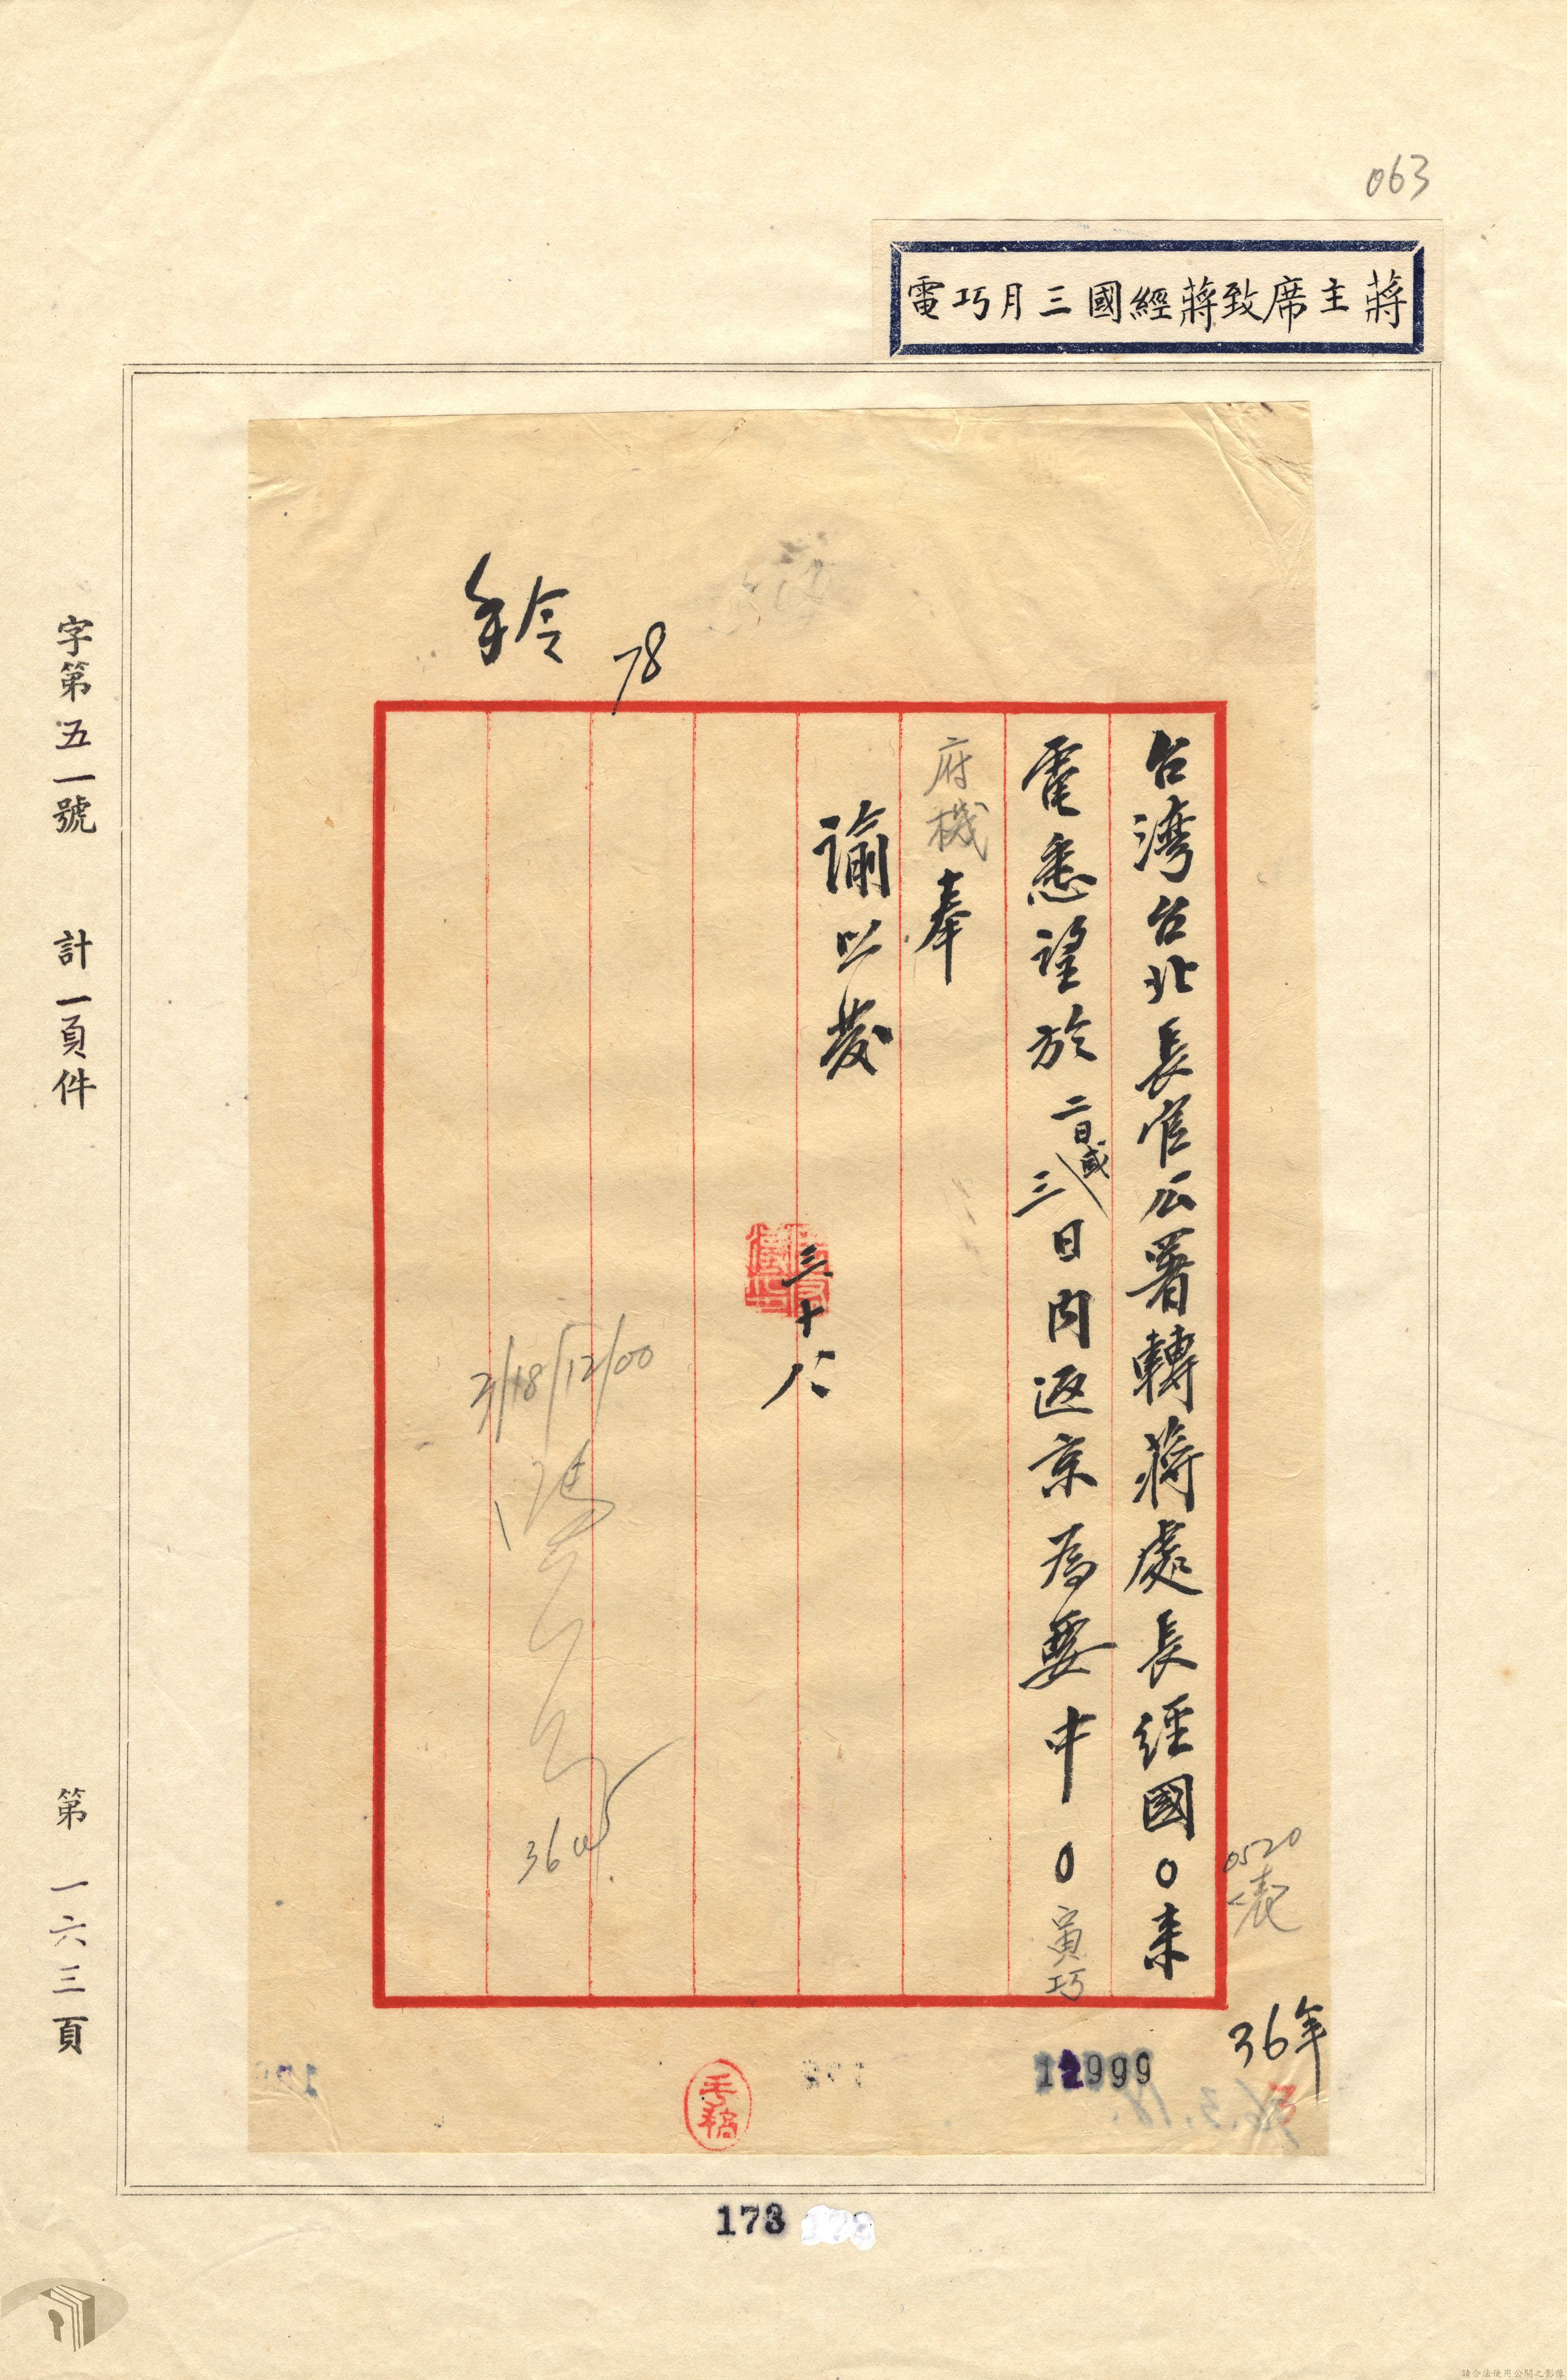 063
蔣主席致蔣經國三月巧電
手令
78
台灣台北長官公署轉蔣處長經國0来
電悉望於二日或三日內返京為要中0寅巧
府機奉
諭照發
三十八
3/18/12/00
0520
36年
12999
手稿
字第五一號 計一頁件 第一六三頁
173
請合法使用公開之影像